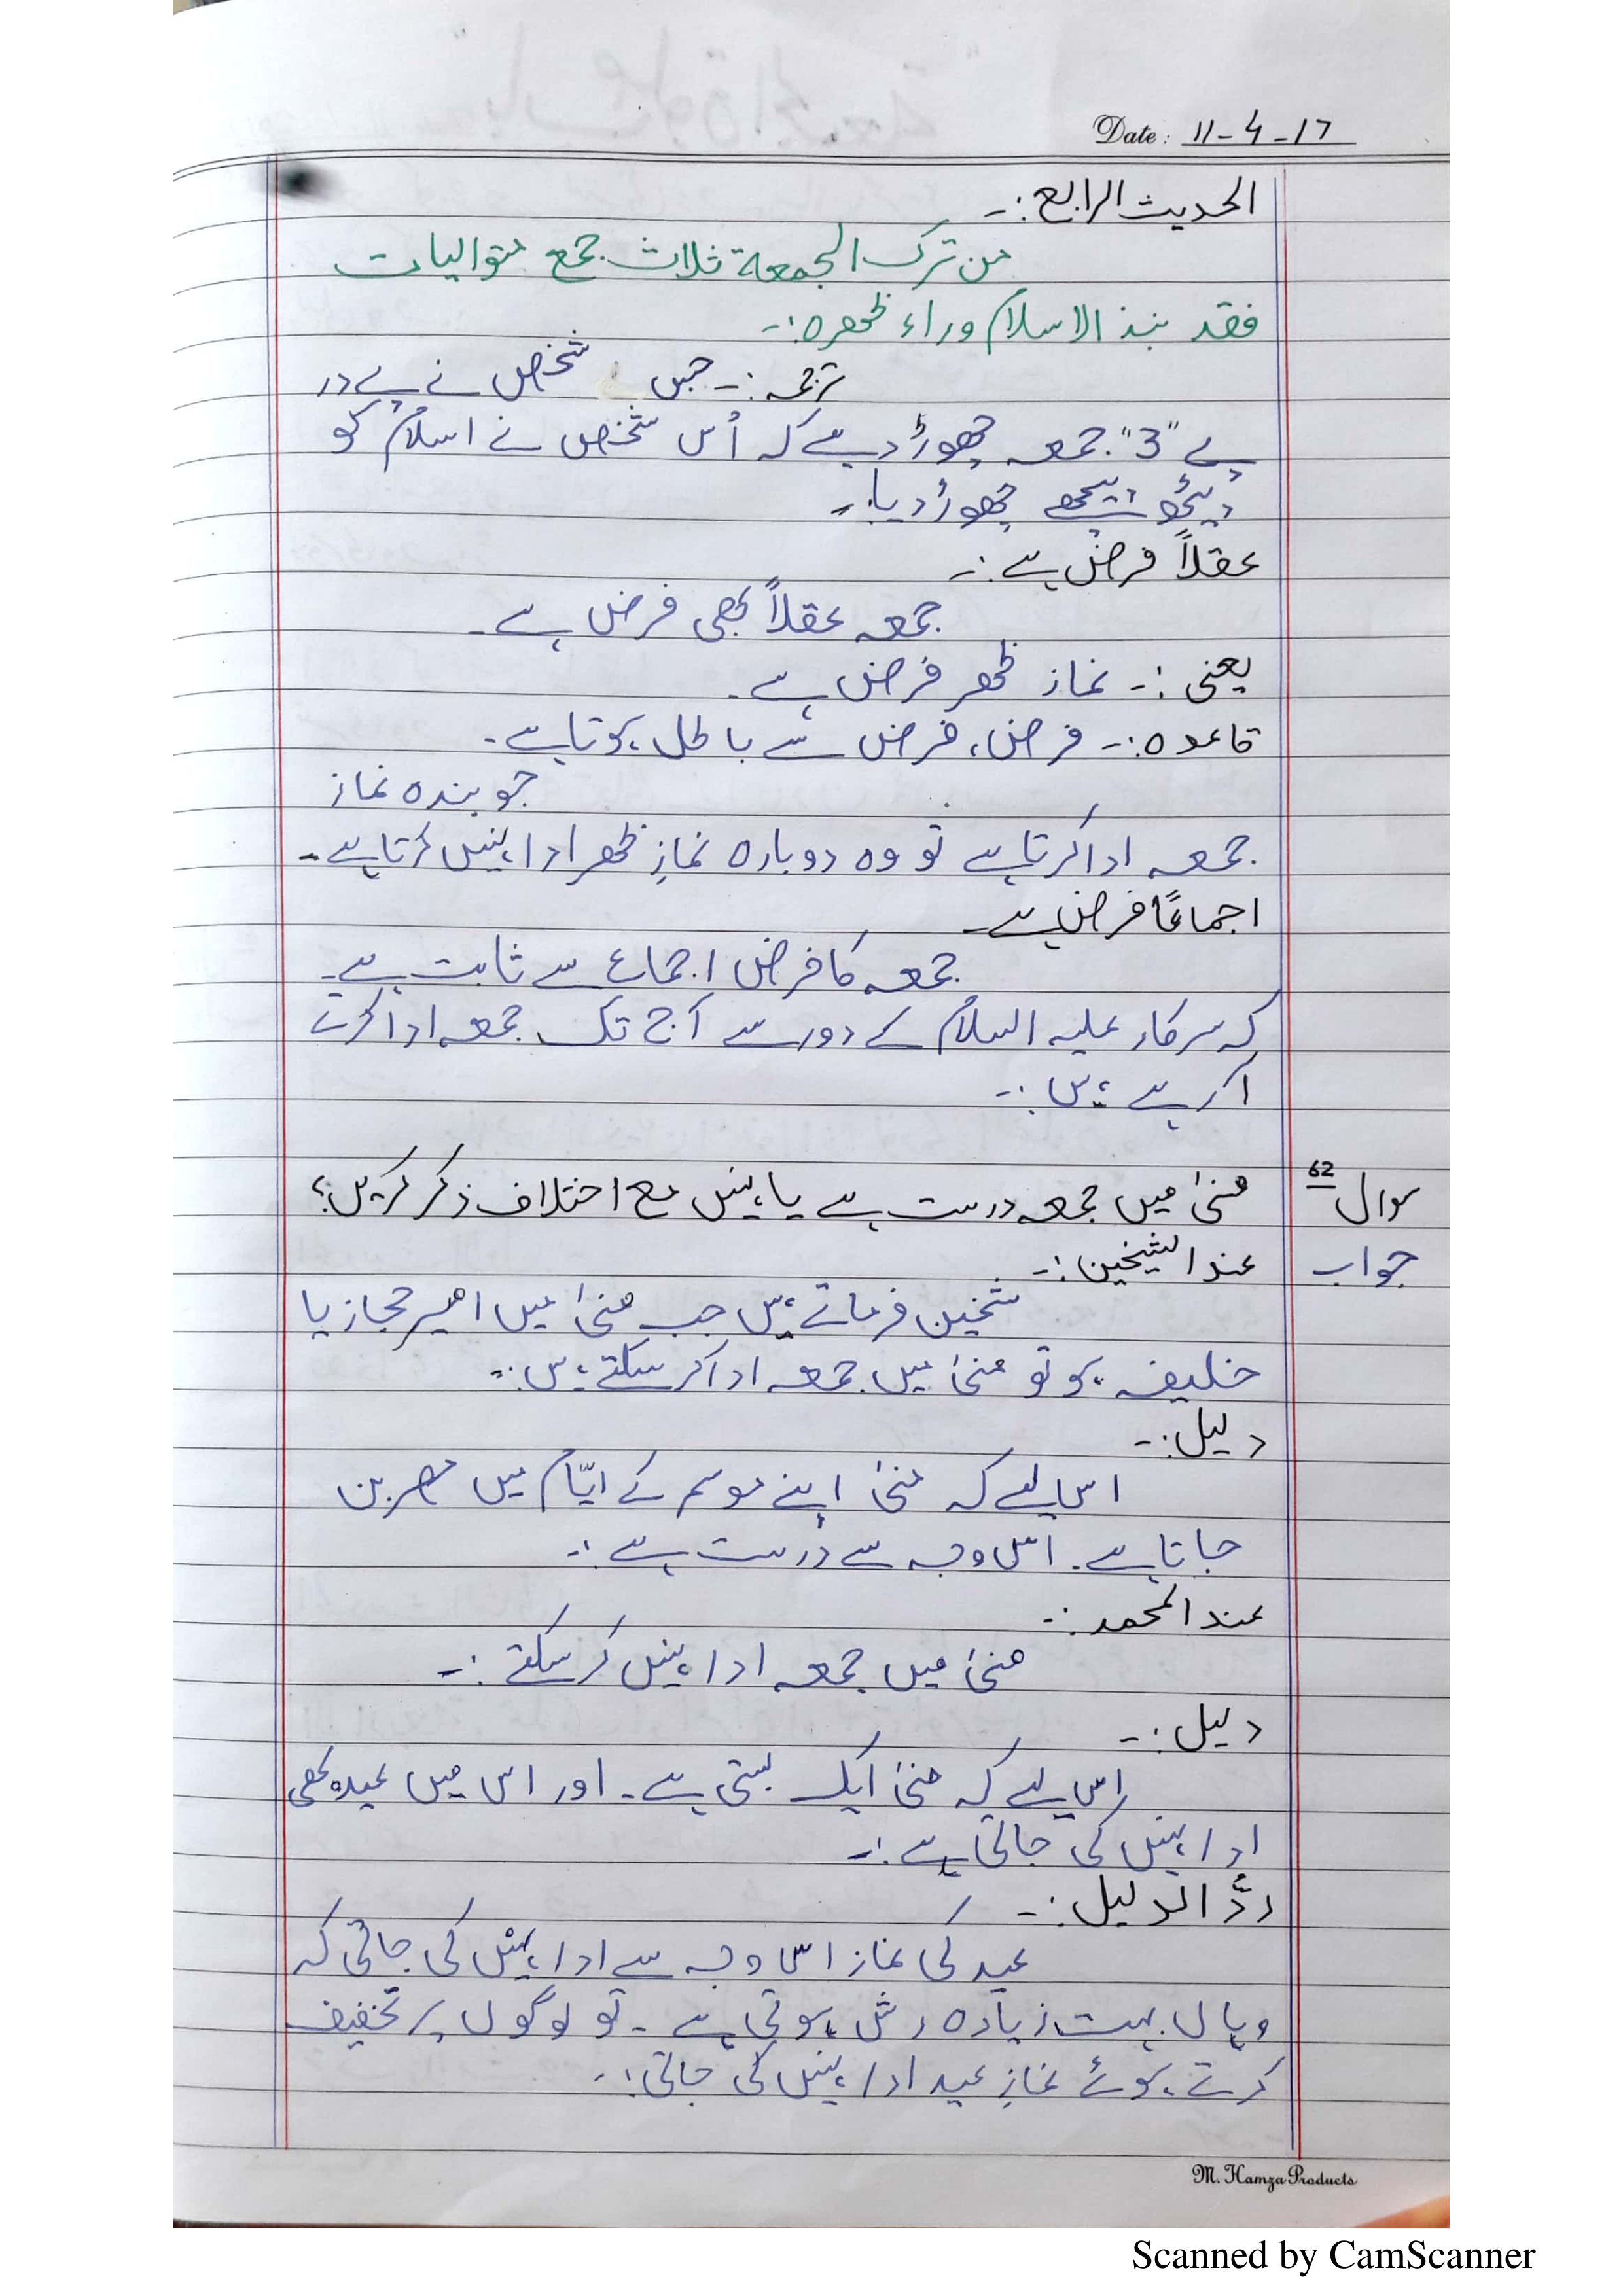 Date: 11-4-17
الحدیث الرابع:-
من ترک الجمعۃ ثلاث جمع متوالیات
فقد نبذ الاسلام وراء ظھرہ:-
ترجمہ:- جس شخص نے پے در
پے "3" جمعہ چھوڑ دیے کہ اُس شخص نے اسلام کو
پیچھے چھوڑ دیا۔
عقلاً فرض ہے:-
جمعہ عقلاً بھی فرض ہے۔
یعنی:- نماز ظھر فرض ہے۔
قاعدہ:- فرض، فرض سے باطل ہوتا ہے۔
جو بندہ نماز
جمعہ ادا کرتا ہے تو وہ دوبارہ نمازِ ظھر ادا نہیں کرتا ہے۔
اجماعًا فرض ہے۔
جمعہ کا فرض اجماع سے ثابت ہے۔
کہ سرکار علیہ السلام کے دور سے آج تک جمعہ ادا کرتے
آ رہے ہیں:-
سوال 62 منیٰ میں جمعہ درست ہے یا نہیں مع اختلاف ذکر کریں؟
جواب عند الشیخین:-
شیخین فرماتے ہیں جب منیٰ میں امیر حجاز یا
خلیفہ ہو تو منیٰ میں جمعہ ادا کر سکتے ہیں:-
دلیل:-
اس لیے کہ منیٰ اپنے موسم کے ایّام میں مصر بن
جاتا ہے۔ اس وجہ سے درست ہے:-
عند المحمد:-
منیٰ میں جمعہ ادا نہیں کر سکتے:-
دلیل:-
اس لیے کہ منیٰ ایک بستی ہے۔ اور اس میں عید بھی
ادا نہیں کی جاتی ہے:-
ردُّ الدلیل:-
عید کی نماز اس وجہ سے ادا نہیں کی جاتی کہ
وہاں بہت زیادہ رش ہوتی ہے۔ تو لوگوں پر تخفیف
کرتے ہوئے نمازِ عید ادا نہیں کی جاتی:-
M. Hamza Products
Scanned by CamScanner